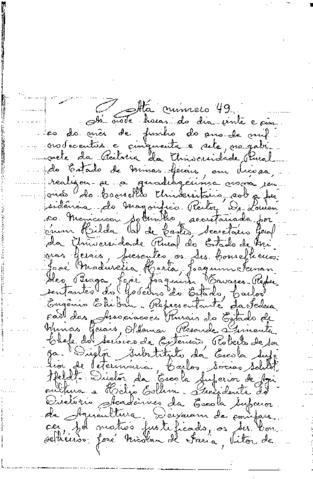 Ata numero 49.
Às nove horas do dia vinte e cin-
co do mês de Junho do ano de mil
novecentos e cinquenta e sete, no gabi-
nete da Reitoria da Universidade Rural
do Estado de Minas Gerais, em Viçosa,
realizou-se a quadragésima nona reu-
nião do Conselho Universitário, sob a pre-
sidência do Magnífico Reitor, Dr. Louren-
ço Menicucci Sobrinho, secretariada por
mim Hilda de Castro, Secretário Geral
da Universidade Rural do Estado de Mi-
nas Gerais, presentes os Srs. Conselheiros:
José Madureira Horta, Joaquim
Braga, José Joaquim Tavares, Repre-
sentantes do Governo do Estado, Carlos
Eugênio Representante da Federa-
ção das Associações Rurais do Estado de
Minas Gerais, Resende Pimenta
Chefe do Serviço de Extensão, Roberto de
Diretor Substituto da Escola Supe-
rior de Veterinária Carlos Socias
Diretor da Escola Superior de Agri-
cultura e Hélio Presidente do
Diretório Acadêmico da Escola Superior
de Agricultura. Deixaram de compare-
cer, por motivo justificado, os Srs. Con-
selheiros: José Nicolau de Faria, Vitor de